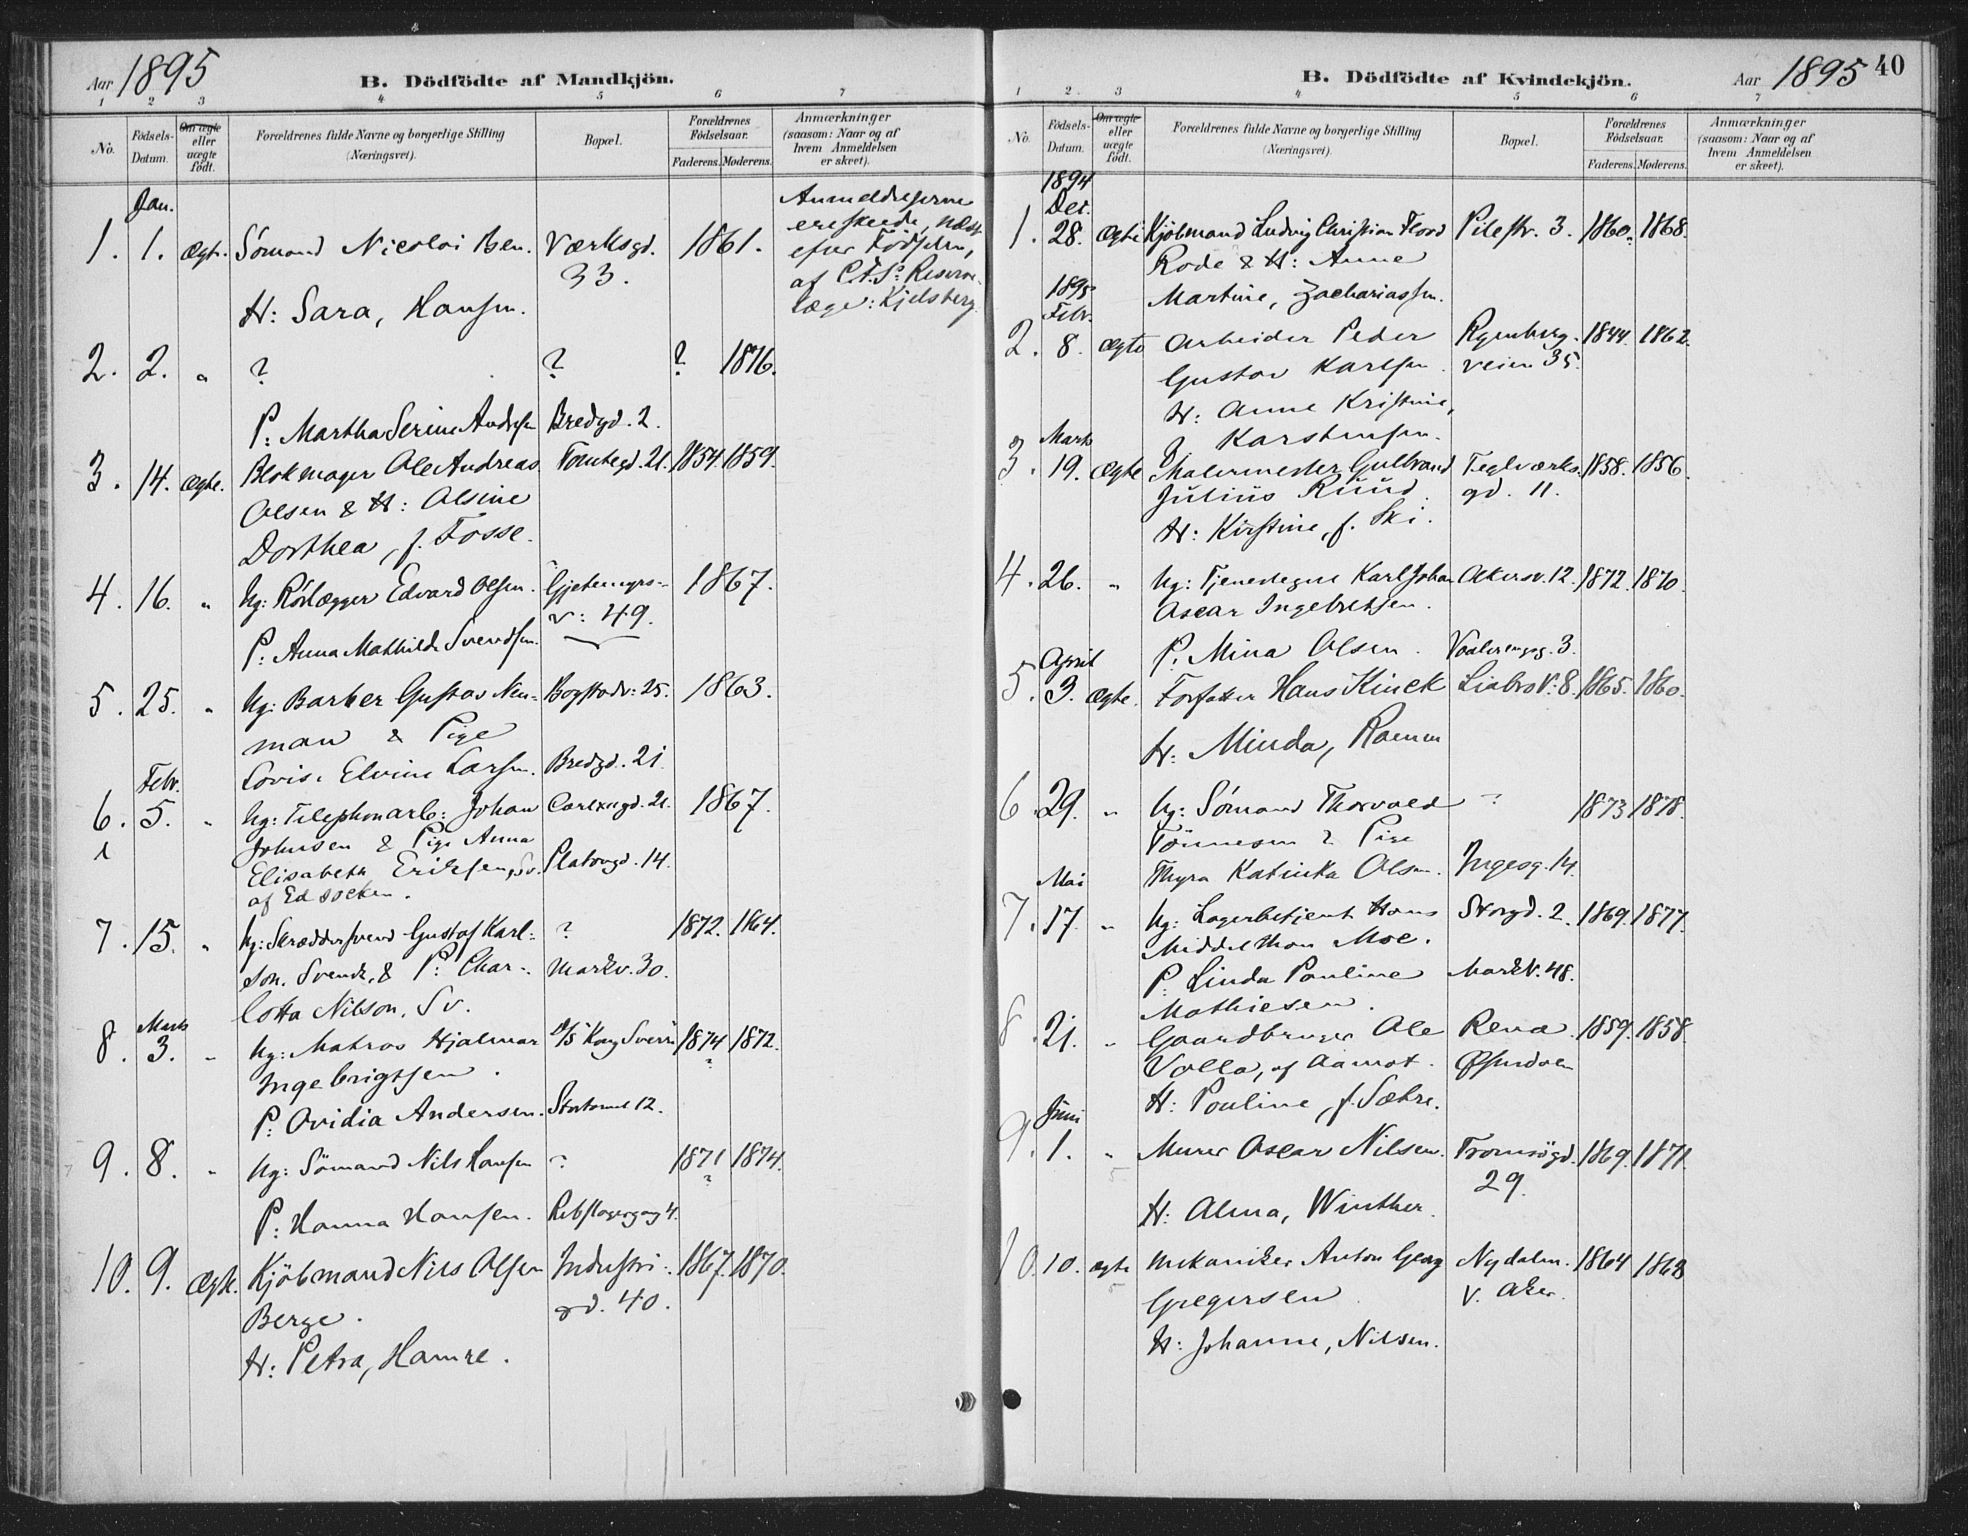 Aar 1895
B. Dödfödte af Mandkjön.
1 2 3 4 5 6 7
No.
Födsels-Datum.
Om ægte eller uægte födt.
Forældrenes fulde Navne og borgerlige Stilling (Næringsvei).
Bopæl.
Forældrenes Födselsaar.
Faderens. Moderens.
Anmærkninger (saasom: Naar og af hvem Anmeldelsen er skeet).
Jan.
1. 1. Ægte. Sømand Nicolai Ben. Værksgd. 33. 1861.
H: Sara, Hansen.
Anmeldelserne
ere skeede, næst
efter Födselen,
af
læge: Kjelsberg
2. 2. " ? ? ? 1876.
P: Martha Serine Andersen Bredgd. 2.
3. 14. Ægte. Blokmager Ole Andreas Tomtegd. 21. 1854. 1859.
Olsen & H: Olsine
Dorthea, f. Fosse.
4. 16. " Ug: Rörlægger Edvard Olsen. Gjetemyrs-
v: 49. 1867.
P: Anna Mathilde Svendsen.
5. 25. " Ug: Barber Gustav Neu- Bogstadv: 25. 1863.
man & Pige
Lovise Elvine Larsen. Bredgd. 21
Febr.
6. 5. " Ug: Telephonarb: Johan 21. 1867.
Johnsen & Pige Anna
Elisabeth Eriksen, Sv. Platousgd. 14.
af Ed socken.
7. 15. " Ug: Skræddersvend Gustaf Karl- ? 1872. 1864.
son. Svensk, & P: Char-
lotta Nilson, Sv. Markv. 30.
Marts
8. 3. " Ug: Matros Hjalmar D/S Kong Sverre 1874 ? 1872.
Ingebrigtsen.
P: Ovidia Andersen. 12.
9. 8. " Ug: Sömand Nils Hansen ? 1871 ? 1874.
P: Hanna Hansen. Rebslagergang 4.
10. 9. Ægte. Kjöbmand Nils Olsen Industri- 1867. 1870.
Berge. gd. 40.
H: Petra, Hamre.
B. Dödfödte af Kvindekjön.
Aar 1895 40
1 2 3 4 5 6 7
No.
Födsels-Datum.
Om ægte eller uægte födt.
Forældrenes fulde Navne og borgerlige Stilling (Næringsvei).
Bopæl.
Forældrenes Födselsaar.
Faderens. Moderens.
Anmærkninger (saasom: Naar og af hvem Anmeldelsen er skeet).
1894
Dec.
1. 28. ægte Kjöbmand Ludvig Christian Flood Pilestr. 3. 1860. 1868.
Rode & H: Anne
Martine, Zachariassen.
1895
Febr.
2. 8. ægte Arbeider Peder Ryenberg- 1844. 1862.
Gustav Karlsen. veien 35.
H: Anne Kristine,
f. Karstensen.
Marts
3. 19. Ægte Malermester Gulbrand Teglværks- 1858. 1856.
Julius Ruud. gd. 11.
H: Kirstine, f. Ski.
4. 26. " Ug: Tjenestegut Karl Johan Akersv. 12. 1872. 1870.
Oscar Ingebretsen.
P. Mina Olsen. Vaalerengsg. 3.
April
5. 3. Ægte. Forfatter Hans Kinck Liabro V: 8. 1865. 1860.
H: Minda, Ramm
6. 29. " Ug: Sömand Thorvald ? 1873 1878.
Tönnesen & Pige
Thyra Katinka Olsen. Ingesg. 14.
Mai
7. 17. " Ug: Lagerbetjent Hans Storgd. 2. 1869. 1877.
Middelthon Moe.
P. Linda Pauline Markv. 48.
Mathiesen.
8. 21. " Gaardbruger Ole Rena 1859. 1858.
Volla, af Aamot. Østerdalen
H: Pauline, f. Sætre.
Juni
9. 1. " Murer Oscar Nilsen. Tromsögd. 1869. 1871.
29.
H: Alma, Winther.
10. 10. ægte Mekaniker Anton Georg Nydalen. 1864 1868
Gregersen V. Aker.
H: Johanne, Nilsen.